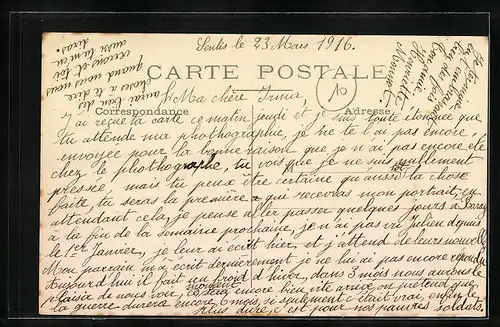 Senlis le 23 Mars 1916.
CARTE POSTALE
Correspondance
Adresse
Ma chère Irma,
J'ai reçue ta carte ce matin jeudi et je suis toute étonnée que
tu attende ma photographie, je ne te l'ai pas encore
envoyée pour la bonne raison que je n'ai pas encore été
chez le photographe, tu vois que je ne suis nullement
pressée, mais tu peux être certaine qu'aussitôt la chose
faite, tu seras la première qui recevras mon portrait, en
attendant cela, je pense aller passer quelques jours à
à la fin de la semaine prochaine, je n'ai pas vu Julien depuis
le 1er Janvier, je leur ai écrit hier, et j'attend de leurs nouvelles
Mon parrain m'a écrit dernièrement je ne lui ai pas encore répondu
aujourd'hui il fait un froid d'hiver, dans 3 mois nous aurons le
plaisir de nous voir, ce moment sera encore bien vite arrivé, on prétend que
la guerre durera encore 6 mois, si seulement c'était vrai, enfin le
plus dure, c'est pour nos pauvres soldats.
aurai bien des
choses à te dire
quand nous nous
verrons et toi
aussi tu m'en
diras.